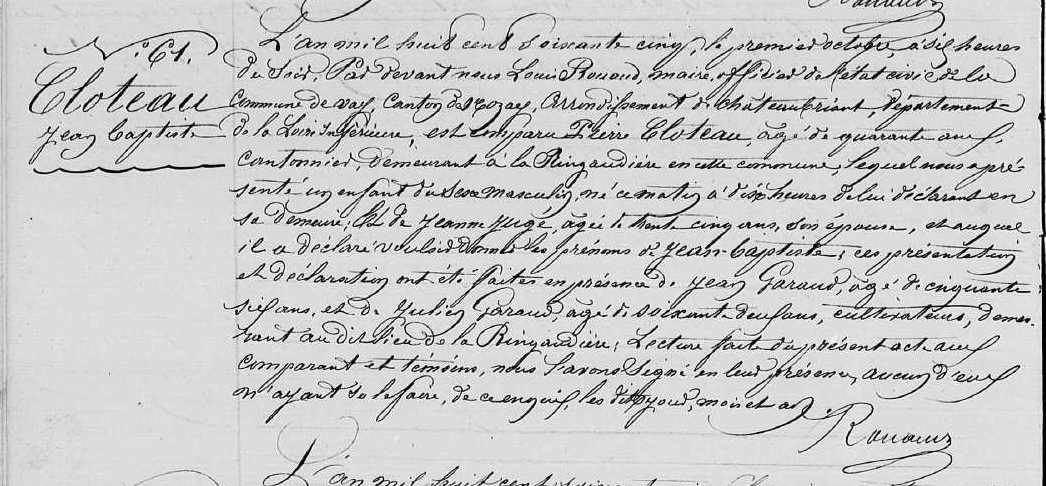 61.
Cloteau
Jean Baptiste
L'an mil huit cent soixante cinq, le premier octobre, à six heures
du soir, Par devant nous Louis Rouaud, maire, officier de l'état civil de la
Commune de vay, Canton de Nozay, arrondissement de châteaubriant, département
de la Loire Inférieure, est comparu Pierre Cloteau, âgé de quarante ans,
cantonnier, demeurant à la Ringaudière en cette commune, lequel nous a pré-
senté un enfant du sexe masculin, né ce matin à dix heures de lui déclarant en
sa demeure, et de Jeanne Jugé, agée de trente cinq ans, son épouse, et auquel
il a déclaré vouloir donner les prénoms de Jean-baptiste; ces présentation
et déclaration ont été faites en présence de Jean Garaud, âgé de cinquante
six ans, et de Julien Garaud, âgé de soixante deux ans, cultivateurs, demeu-
rant au dit lieu de la Ringaudière; Lecture faite du présent acte aux
comparant et témoins, nous l'avons signé en leur présence, aucun d'eux
n'ayant su le faire, de ce enquis, les dits jour, mois et an.
Rouaud
L'an mil huit cent